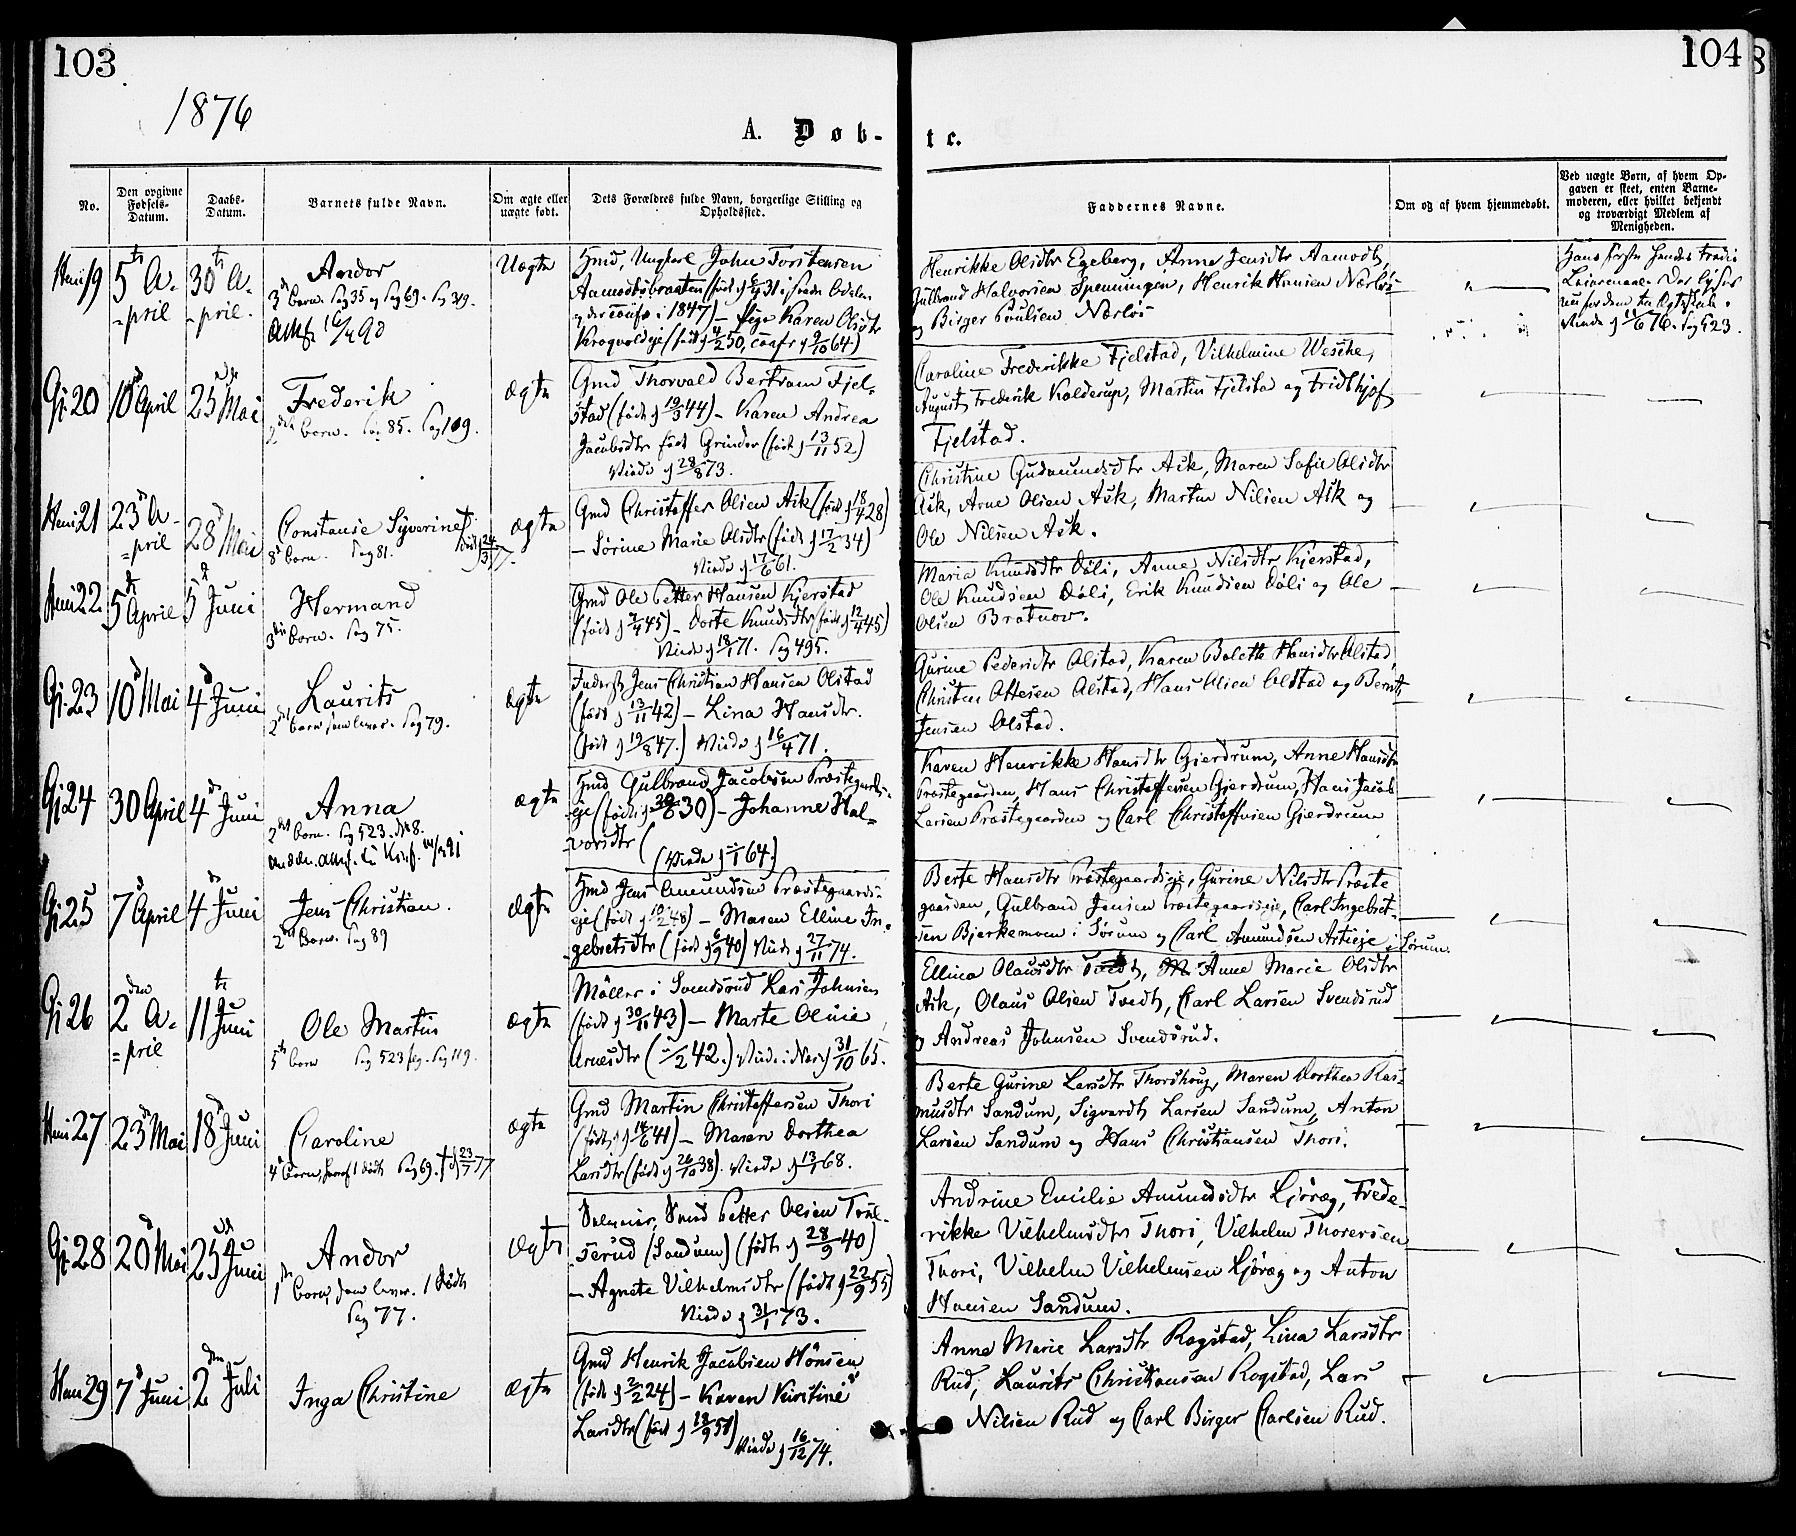 103
104
1876
A. Døb-
te.
No.
Den opgivne
Fødsels-
Datum.
Daabs-
Datum.
Barnets fulde Navn.
Om ægte eller
uægte født.
Dets Forældres fulde Navn, borgerlige Stilling og
Opholdssted.
Faddernes Navne.
Om og af hvem hjemmedøbt.
Ved uægte Børn, af hvem Op-
gaven er skeet, enten Barne-
moderen, eller hvilket bekjendt
og troværdigt Medlem af
Menigheden.
19
5 A-
pril
30 A-
pril.
Andor
3 Barn. Pag 35 og Pag 69. Pag 319.
Uægte
Ungkarl John Torstensen
Pige Karen Olsdtr
Krogvoldeje
Henrikke Olsdtr Egeberg, Anne Jensdtr Aamodt,
Gulbrand Halvorsen Spenningen, Henrik Hansen Nærlø
og Birger Poulsen Nærlø
Gj. 20
10 April
25 Mai
Frederik
2det Barn. Pag 85. Pag 109.
Ægte
Gmd Thorvald Bertram Fjel-
stad (født d 19/3 44) - Karen Andrea
Jacobsdtr født Grinder (født d 13/11 52)
Viede d 28/8 73.
Caroline Frederikke Fjelstad, Vilhelmine Wesche,
August Frederik Kolderup, Martin Fjelstad og Fridthjof
Fjelstad.
21
23 A-
pril
28 Mai
Constanse Syverine
8 Barn. Pag 81.
Ægte
Gmd Christoffer Olsen Ask (født d 18/4 28)
- Sørine Marie Olsdtr (født d 17/2 34)
Viede d 17/6 61.
Christine Gudmundsdtr Ask, Maren Sofie Olsdtr
Ask, Arne Olsen Ask, Martin Nilsen Ask og
Ole Nilsen Ask.
22
5 April
5 Juni
Hermand
3die Barn. Pag 75.
Gmd Ole Petter Hansen Kjerstad
- Dorte Knudsdtr (født d 12/4 45)
Viede d 18/1 71. Pag 495.
Maria Knudsdtr Døli, Anne Nilsdtr Kjerstad,
Ole Knudsen Døli, Erik Knudsen Døli og Ole
Olsen Bratnov.
Gj. 23
10 Mai
4 Juni
Laurits
2det Barn, som lever. Pag 79.
Ægte
Inderst Jens Christian Hansen Olstad
(født d 13/11 42) - Lina Hansdtr.
(født d 19/8 47.) Viede d 16/4 71.
Gurine Pedersdtr Olstad, Karen Bolette Hansdtr Olstad,
Christen Ottesen Olstad, Hans Olsen Olstad og Bernt
Jensen Olstad.
Gj 24
30 April
4 Juni
Anna
2det Barn. Pag 523. No 8.
Ægte
Gulbrand Jacobsen Præstegaards-
eje - Johanne Hal-
vorsdtr
(Viede d 64.)
Karen Henrikke Hansdtr Gjerdrum, Anne Hansdtr
Præstegaarden, Hans Christoffersen Gjerdrum, Hans Jacob
Larsen Præstegaarden og Carl Christoffersen Gjerdrum
Gj 25
7 April
4 Juni
Jens Christian.
2det Barn. Pag 89
Ægte
Jens Amundsen Præstegaards-
eje - Maren Elline In-
gebretsdtr (født d 6/9 40) Viede d 27/11 74.
Berte Hansdtr Præstegaardseje, Gurine Nilsdtr Præste
gaarden, Gulbrand Jensen Præstegaardseje, Carl Ingebret-
sen Bjerkemoen i Sørum og Carl Amundsen Asteje i Sørum.
Gj 26
den
2 A-
pril
11 Juni
Ole Martin
5te Barn Pag 523. Pag 119.
Ægte
Møller i Svendsrud Lars Johnsen
(født d 30/11 43) - Marte Oline
Arnesdtr 31/10 65.
Ellina Olausdtr Tvedt, Anne Marie Olsdtr
Ask, Olaus Olsen Tvedt, Carl Larsen Svendsrud
og Andreas Johnsen Svendsrud.
27
23 Mai
18 Juni
Caroline
Ægte
Gmd Martin Christoffersen Thori
(født d 14/6 41) - Maren Dorthea
Larsdtr (født d 26/10 38). Viede d 13/1 68.
Berte Gurine Larsdtr Thorshoug, Maren Dorthea Ras-
musdtr Sandum, Sigvardt Larsen Sandum, Anton
Larsen Sandum og Hans Christiansen Thori.
Gj. 28
20 Mai
25 Juni
Andor
1 Barn, som lever. 1 død
Pag 77.
Ægte
Petter Olsen Trul-
serud (Sandum) (født d 28/9 40)
- Agnete Vilhelmsdtr (født d 22/9 55)
Viede d 31/1 73.
Andrine Emilie Amundsdtr Kjøræg, Frede-
rikke Vilhelmsdtr Thori, Vilhelm Thorersen
Thori, Vilhelm Vilhelmsen Kjøræg og Anton
Hansen Sandum.
29
7 Juni
den
2 Juli
Inga Christine
Ægte
Gmd Henrik Jacobsen Hønsen
(født d 2/2 24) - Karen Kirstine
Larsdtr
Viede d 16/12 74.
Anne Marie Larsdtr Rogstad, Lina Larsdtr
Rud, Laurits Christiansen Rogstad, Lars
Nilsen Rud og Carl Birger Carlsen Rud.